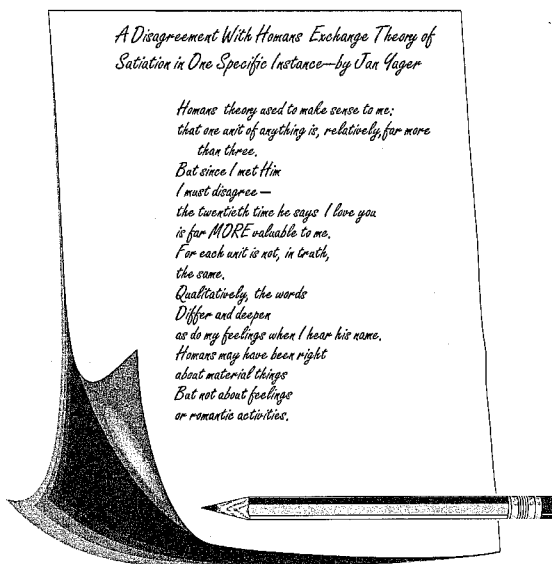 A Disagreement With Homans Exchange Theory of
Satiation in One Specific Instance—by Jan Yager
Homans theory used to make sense to me:
that one unit of anything is, relatively, far more
than three.
But since I met Him
I must disagree—
the twentieth time he says I love you
is far MORE valuable to me.
For each unit is not, in truth,
the same.
Qualitatively, the words
Differ and deepen
as do my feelings when I hear his name.
Homans may have been right
about material things
But not about feelings
or romantic activities.